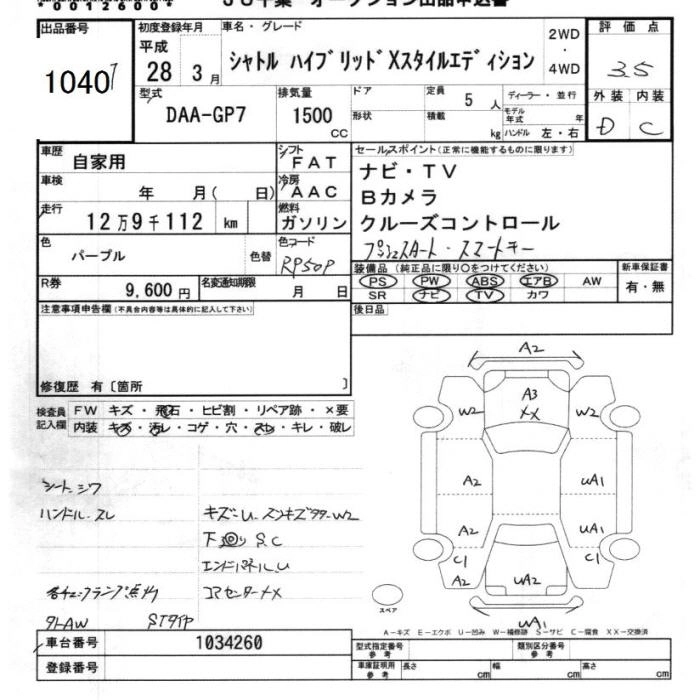 00126004
JU千葉 オークション出品申込書
出品番号 初度登録年月 車名・グレード 2WD ・ 4WD 評価点
10407 平成 28 3月 シャトル ハイブリッドXスタイルエディション 3.5
型式 排気量 ドア 定員 5 人 ディーラー・並行 外装 内装
DAA-GP7 1500 CC 形状 積載 kg モデル年式 年 D C
ハンドル 左・右
車歴 自家用 シフト FAT セールスポイント(正常に機能するものに限ります)
車検 年 月( 日) 冷房 AAC ナビ・TV
走行 12万9千112 km 燃料 ガソリン Bカメラ
クルーズコントロール
色 パープル 色替 色コード RP50P プッシュスタート・スマートキー
R券 9,600円 名変通知期限 月 日 装備品(純正品に限り○をつけてください) 新車保証書
PS PW ABS エアB AW 有・無
SR ナビ TV カワ
注意事項申告欄(不具合内容等は具体的に記入して下さい) 後日品
修復歴 有〔箇所 〕
検査員記入欄 FW キズ・飛石・ヒビ割・リペア跡・×要
内装 キズ・汚レ・コゲ・穴・スレ・キレ・破レ
シートシワ
ハンドルスレ キズ-U
下廻りS.C
コアセンターAX
外AW STタイヤ
A2
A3
XX
W2 W2
A2 UA1
A2 UA1
C1 C1
A2 UA2
UA1
スペア
A-キズ E-エクボ U-凹み W-補修跡 S-サビ C-腐食 XX-交換済
車台番号 1034260 型式指定番号 参考 類別区分番号 参考
登録番号 車庫証明用 参考 長さ cm 幅 cm 高さ cm